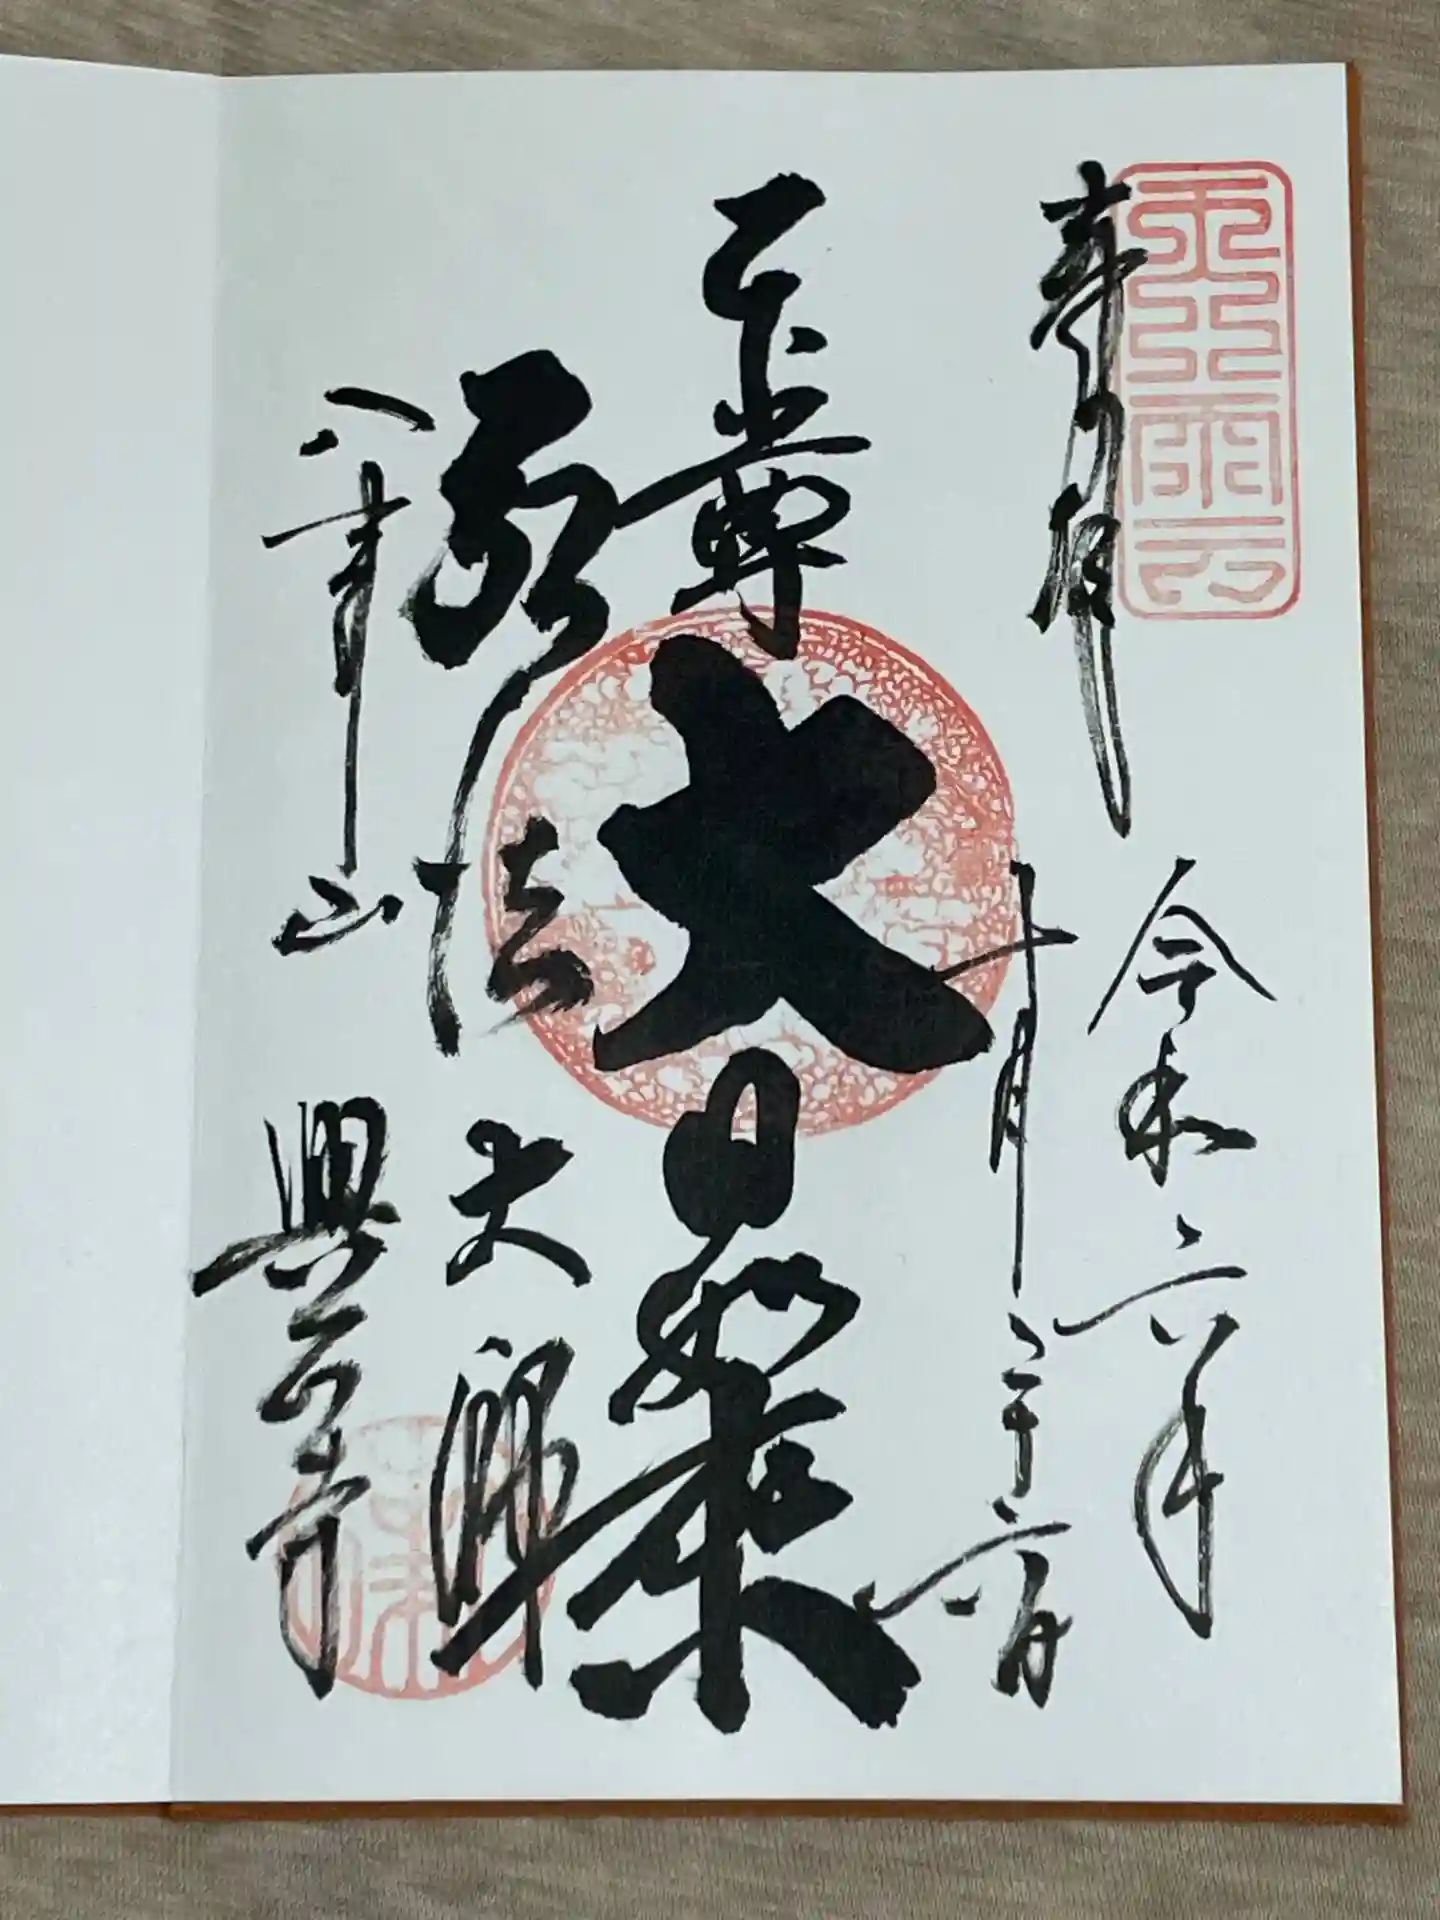 奉拝
令和六年
十月二十六日
本尊 大日如来
弘法大師
八事山 興正寺